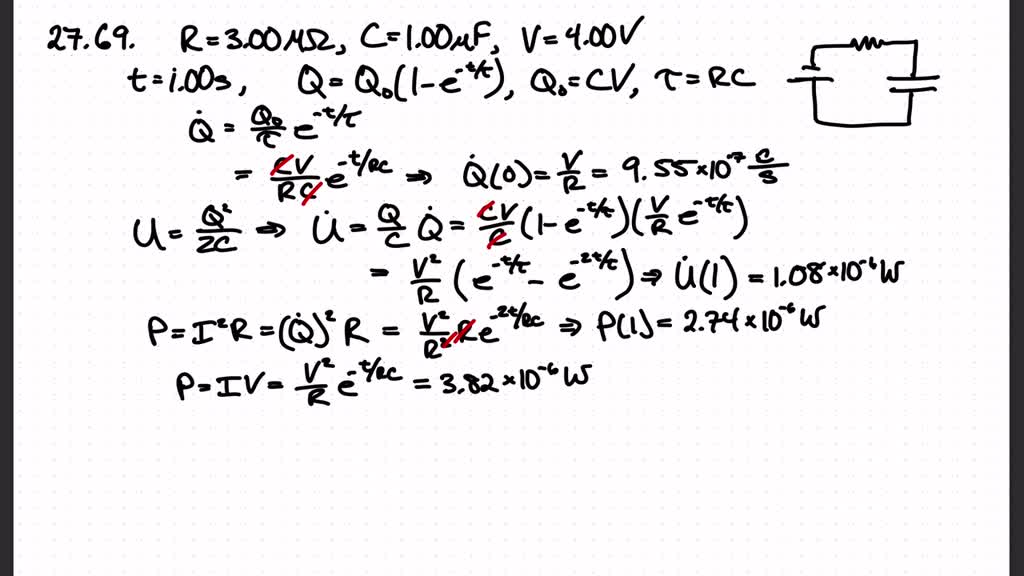 27.69. R = 3.00 MΩ, C = 1.00 μF, V = 4.00 V
t = 1.00 s, Q = Q₀(1 - e^(-t/τ)), Q₀ = CV, τ = RC
Q̇ = Q₀/τ e^(-t/τ)
= CV/RC e^(-t/RC) ⇒ Q̇(0) = V/R = 9.55 × 10⁻⁷ C/s
U = Q²/2C ⇒ U̇ = Q/C Q̇ = CV/C (1 - e^(-t/τ))(V/R e^(-t/τ))
= V²/R (e^(-t/τ) - e^(-2t/τ)) ⇒ U̇(1) = 1.08 × 10⁻⁶ W
P = I²R = (Q̇)²R = V²/R² R e^(-2t/RC) ⇒ P(1) = 2.74 × 10⁻⁶ W
P = IV = V²/R e^(-t/RC) = 3.82 × 10⁻⁶ W